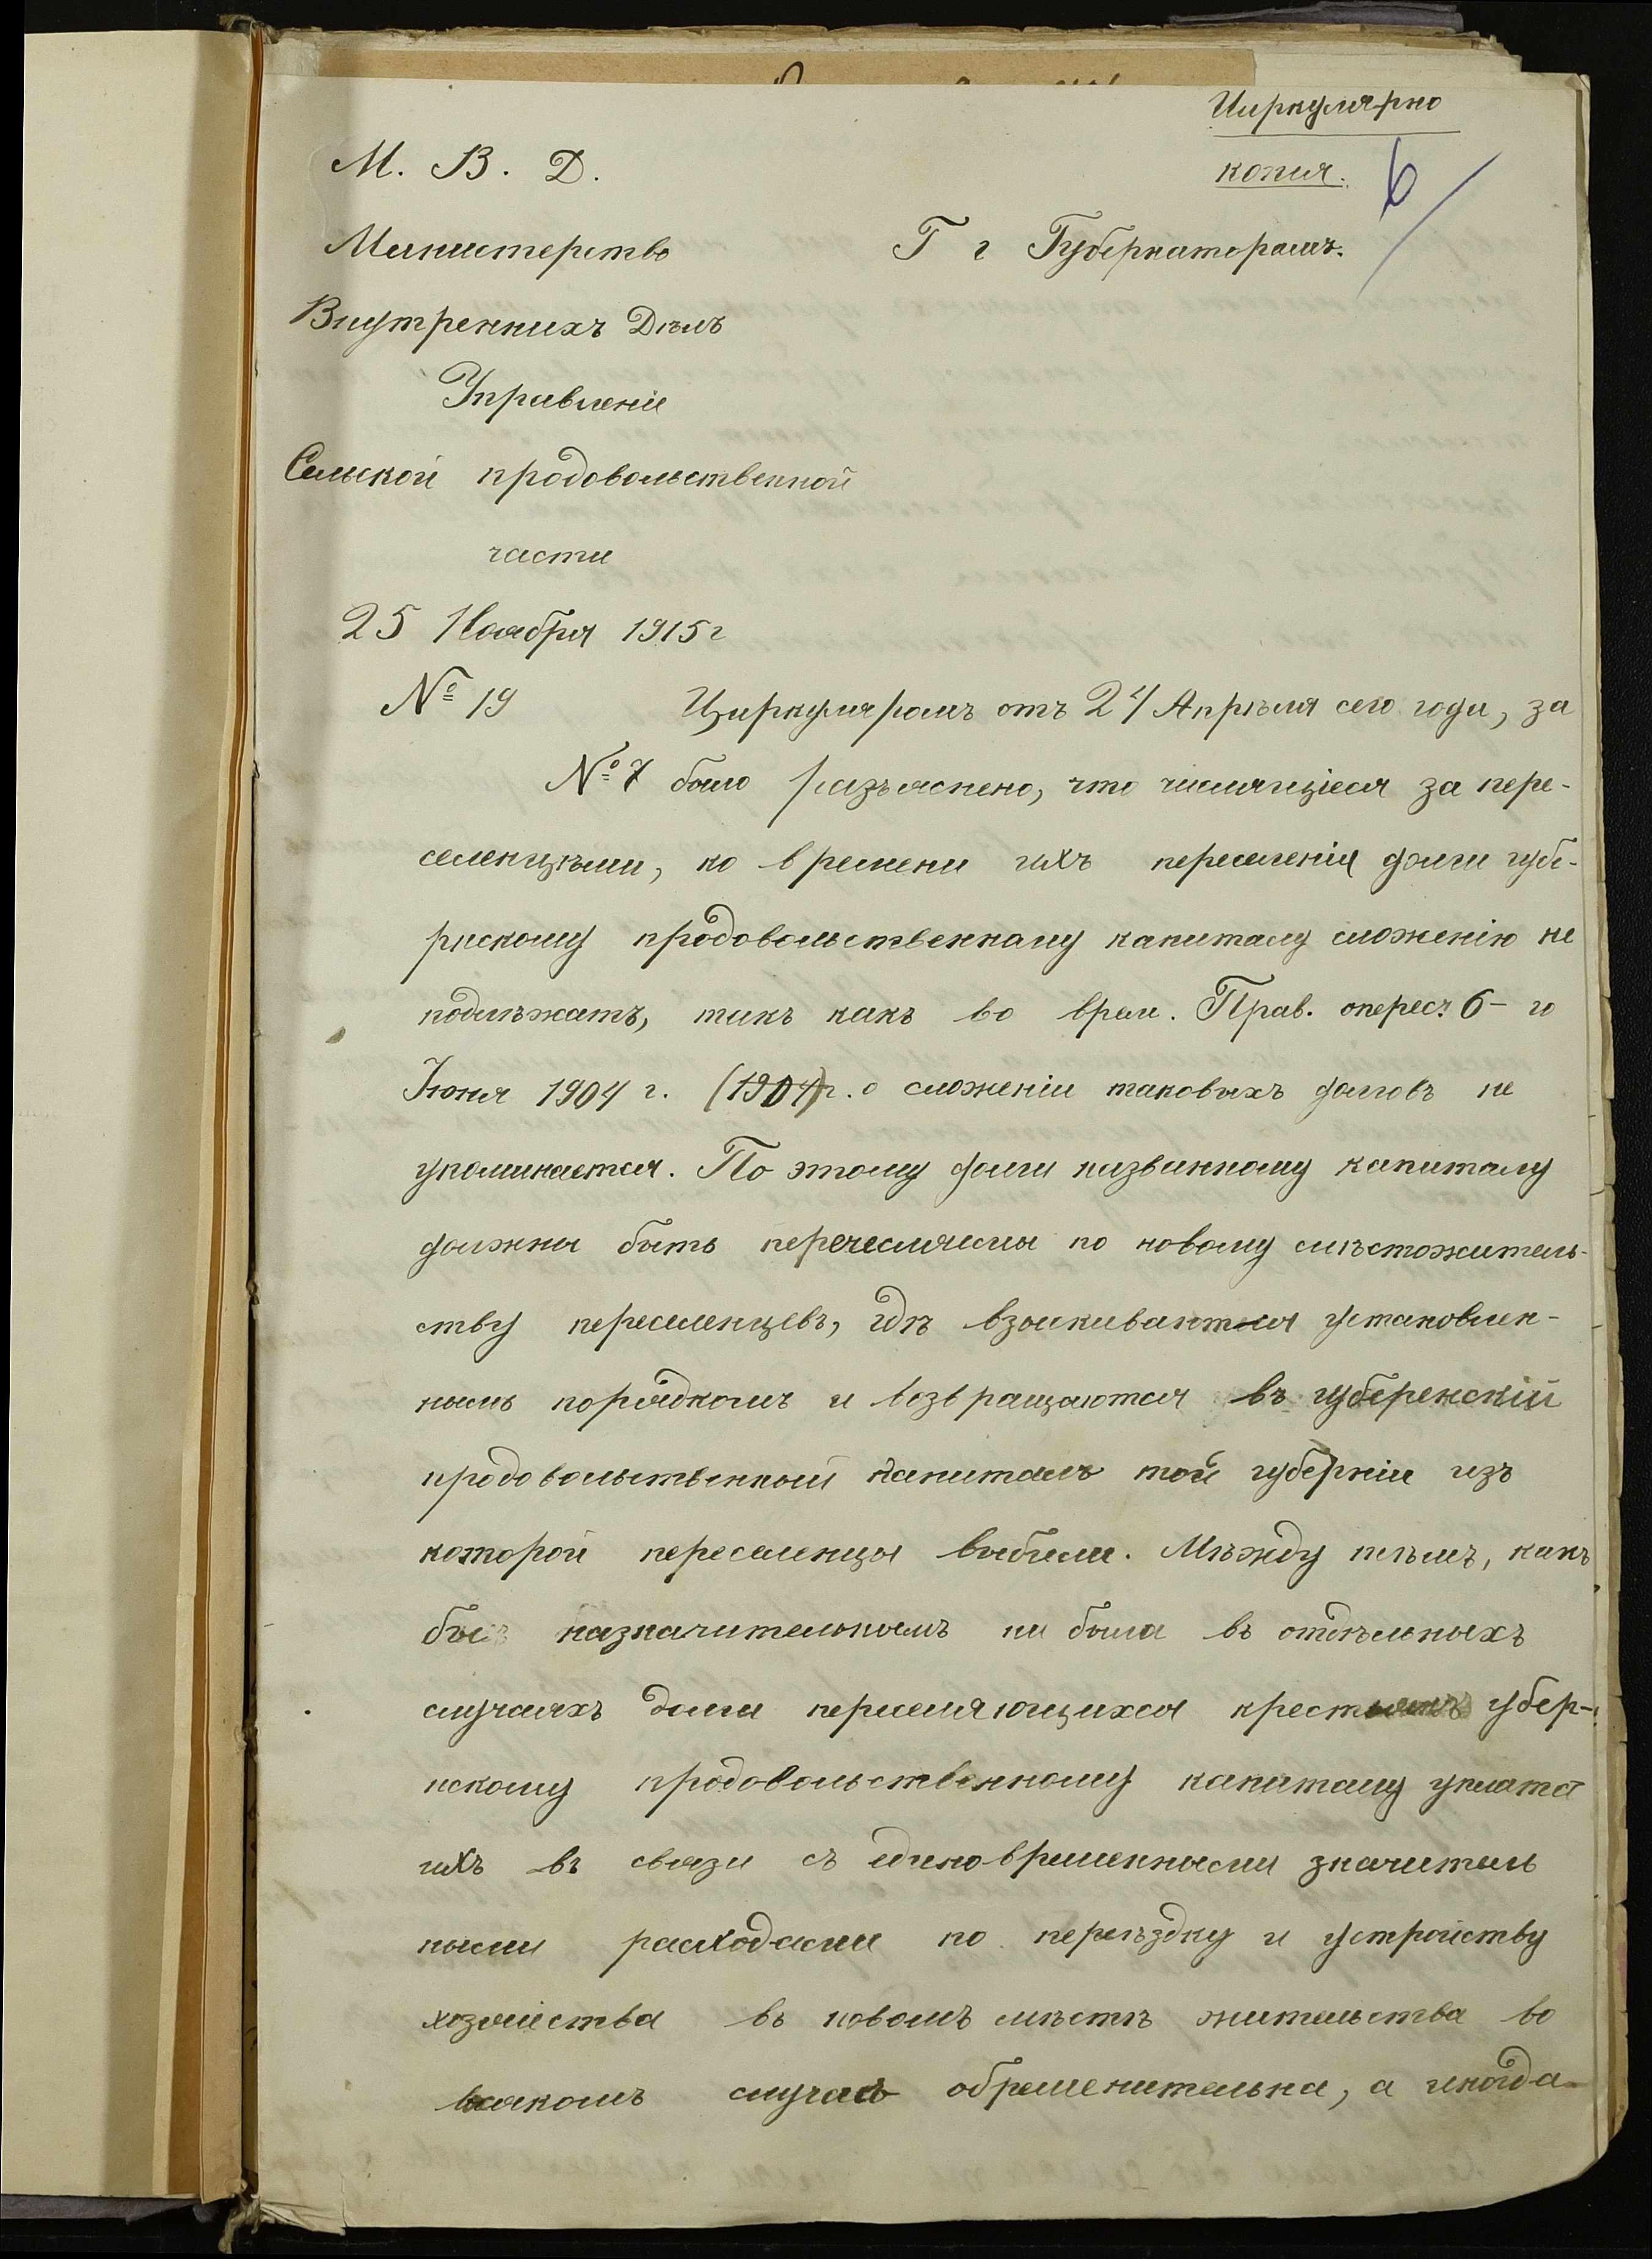 Циркулярно
копия.
6
М. В. Д.
Министерство
Г г Губернаторамъ.
Внутреннихъ Дѣлъ
Управленіе
Сельской продовольственной
части
25 Ноября 1915 г
№ 19
Циркуляромъ отъ 24 Апрѣля сего года, за
№ 7 было разъяснено, что числящіеся за пере-
селенцѣми, ко времени ихъ переселенія долги губе-
рнскому продовольственному капиталу сложенію не
подлѣжатъ, такъ какъ во врем. Прав. оперес. 6-го
Іюня 1904 г. (1904) г. о сложеніи таковыхъ долговъ не
упоминается. По этому долги названному капиталу
должны быть перечесляемы по новому мѣстожитель-
ству переселенцевъ, гдѣ взыскиваются установлен-
нымъ порядкомъ и возвращаются въ губеренскій
продовольственный капиталъ той губерніи изъ
которой переселенцы выбыли. Мѣжду тѣмъ, какъ
бы назначительнымъ ни была въ отдѣльныхъ
случаяхъ долги переселяющихся крестьянъ губер-
нскому продовольственному капиталу уплата
ихъ въ связи съ единовременными значитель
ными расходами по переѣздку и устройству
хозяйства въ новомъ мѣстѣ жительства во
всякомъ случаѣ обременительна, а иногда